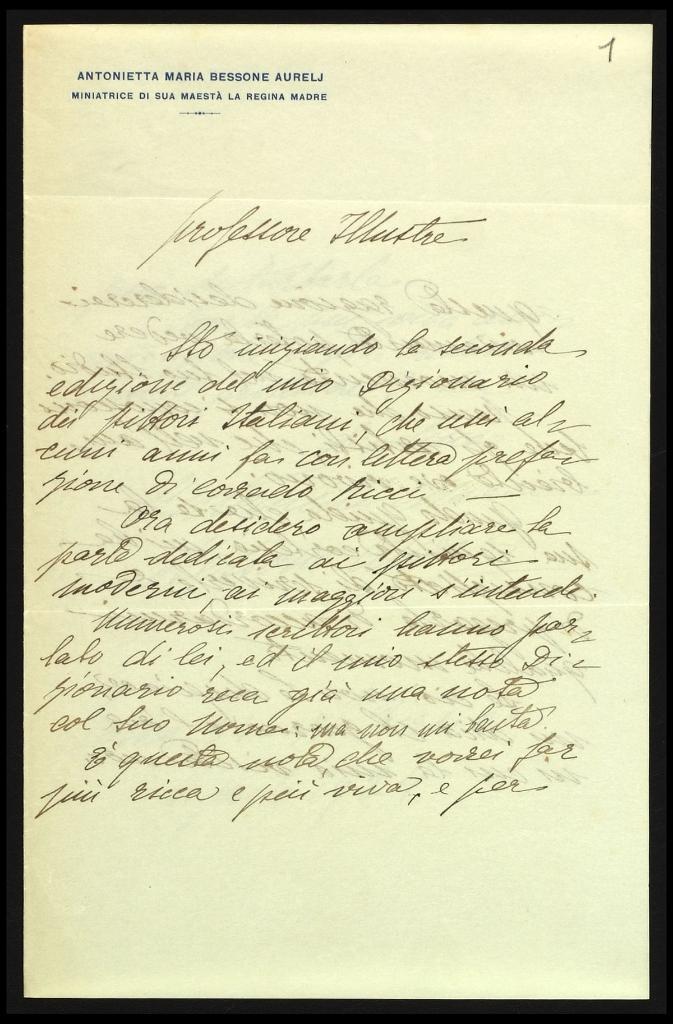 1
ANTONIETTA MARIA BESSONE AURELJ
MINIATRICE DI SUA MAESTÀ LA REGINA MADRE
Professore Illustre
Sto iniziando la seconda
edizione del mio Dizionario
dei pittori Italiani, che uscì al-
cuni anni fa con lettera prefa-
zione di Corrado Ricci —
Ora desidero ampliare la
parte dedicata ai pittori
moderni, ai maggiori s'intende.
Numerosi scrittori hanno par-
lato di lei, ed il mio stesso Di-
zionario reca già una nota
col Suo Nome: ma non mi basta.
È questa nota, che vorrei far
più ricca e più viva, e per